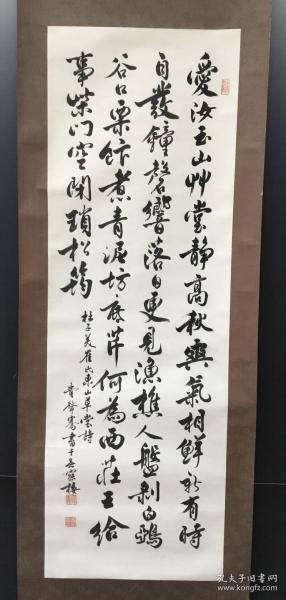 愛汝玉山艸堂静高秋爽氣相鮮新有時
自發鐘磬響落日更見漁樵人盤剥白鵶
谷口栗飰煮青泥坊底芹何為西莊王給
事柴門空閉鎖松筠
杜子美崔氏東山草堂詩
孔夫子旧书网